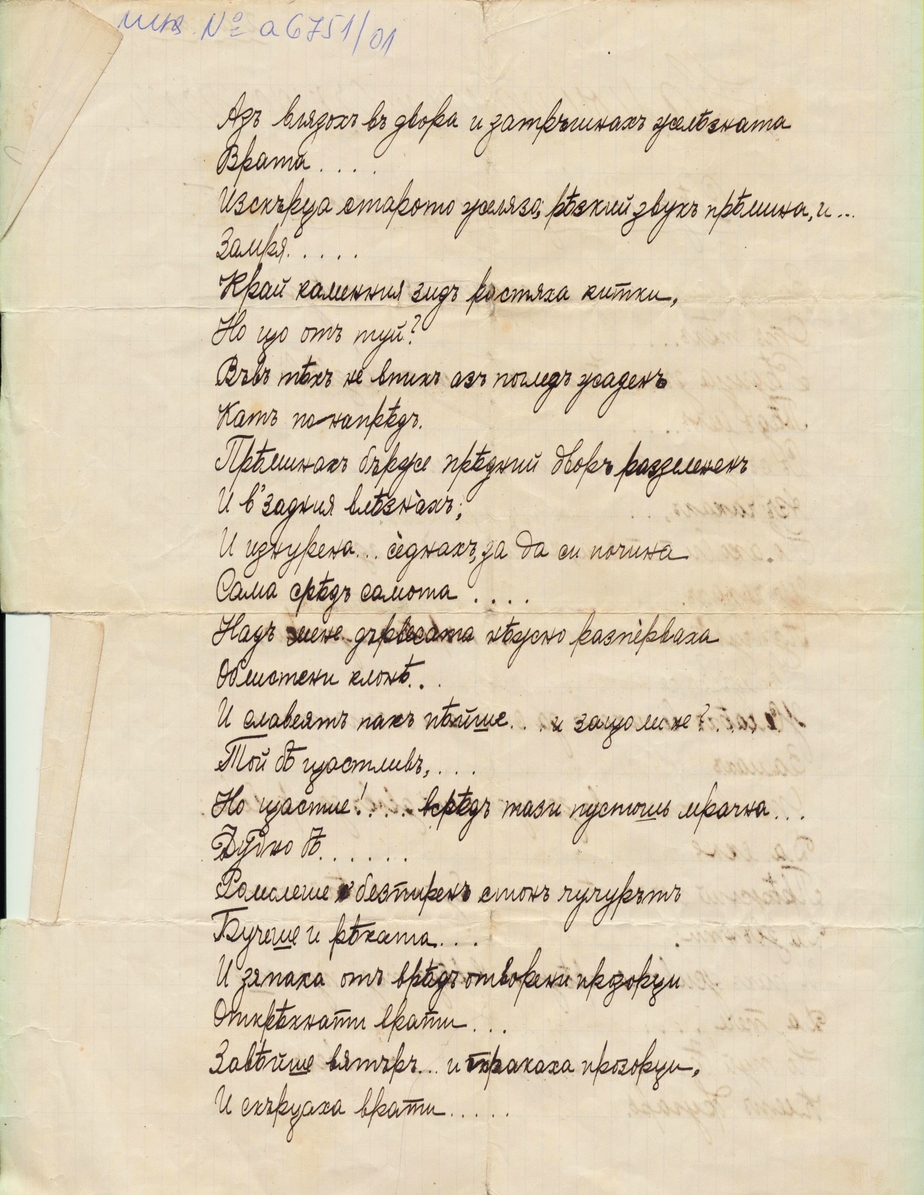 инв № а 6751/01
Азъ влязохъ въ двора и затръшнахъ желѣзната
Врата . . . .
Изскърца старото желязо, рѣзкий звукъ прѣмина, и ...
Замря . . . . .
Край каменния зидъ растяха китки,
Но що отъ туй?
Въвъ тѣхъ не впихъ азъ погледъ жаденъ
Катъ по-напрѣдъ.
Прѣминахъ бърже прѣдний дворъ разделенъ
И в' задния влѣзнахъ;
И изнурена... седнахъ, за да си почина
Сама срѣдъ самота . . . .
Надъ мене дървесата нѣжно разперваха
Облистени клонѣ . .
И славеятъ пакъ пѣйше... и защо ли не? . . .
Той бѣ щастливъ, . . .
Но щастие! . . . . врѣдъ тази пустошь мрачна ...
Дудно бѣ . . . . . .
Ромолеше безпиренъ стонъ чучурътъ
Бучеше и рѣката . . .
И зяпаха отъ врѣдъ отворени прозорци
Открѣхнати врати . . .
Завѣйше вятъръ... и тракаха прозорци,
И скърцаха врати . . . . .